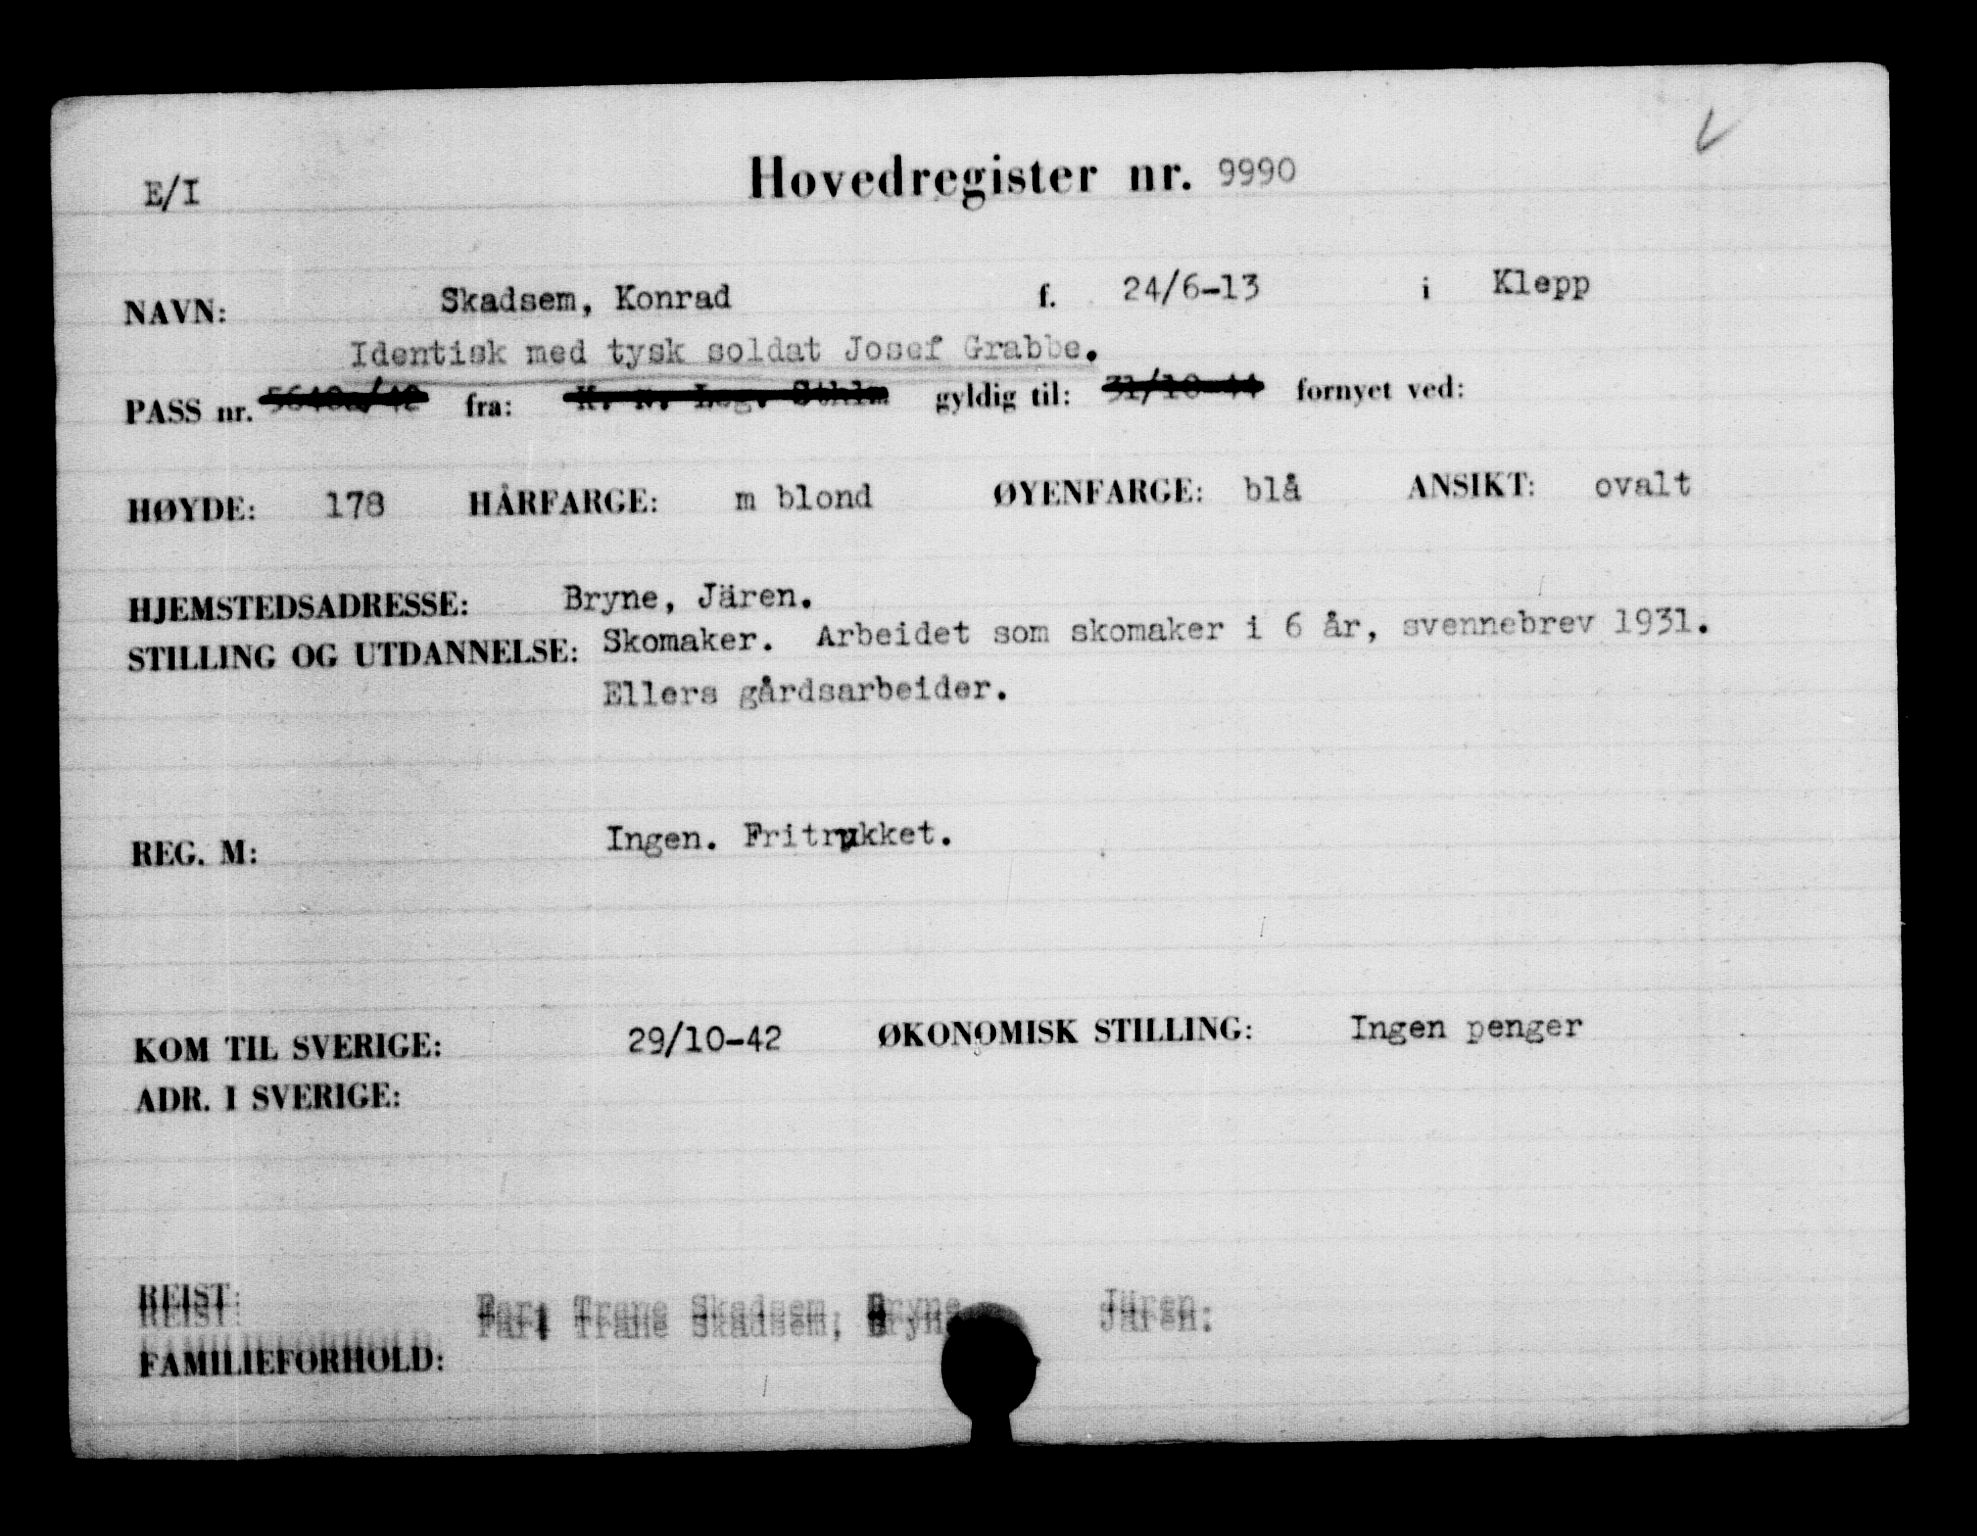 E/I
Hovedregister nr. 9990
NAVN: Skadsem, Konrad f. 24/6-13 i Klepp
Identisk med tysk soldat Josef Grabbe.
PASS nr. fra: K. N. Leg. Sthlm gyldig til: 31/10-44 fornyet ved:
HØYDE: 178 HÅRFARGE: m blond ØYENFARGE: blå ANSIKT: ovalt
HJEMSTEDSADRESSE: Bryne, Jären.
STILLING OG UTDANNELSE: Skomaker. Arbeidet som skomaker i 6 år, svennebrev 1931.
Ellers gårdsarbeider.
REG. M: Ingen. Fritrukket.
KOM TIL SVERIGE: 29/10-42 ØKONOMISK STILLING: Ingen penger
ADR. I SVERIGE:
REIST:
Far: Trane Skadsem, Bryne Jären.
FAMILIEFORHOLD: